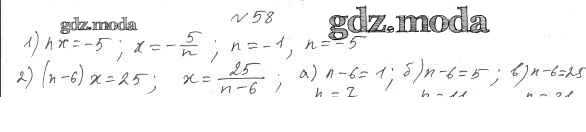 №58
gdz.moda gdz.moda
1) nx=-5; x=-5/n; n=-1, n=-5
2) (n-6)x=25; x=25/(n-6); а) n-6=1; б) n-6=5; в) n-6=25
n=7 n=11 n=31